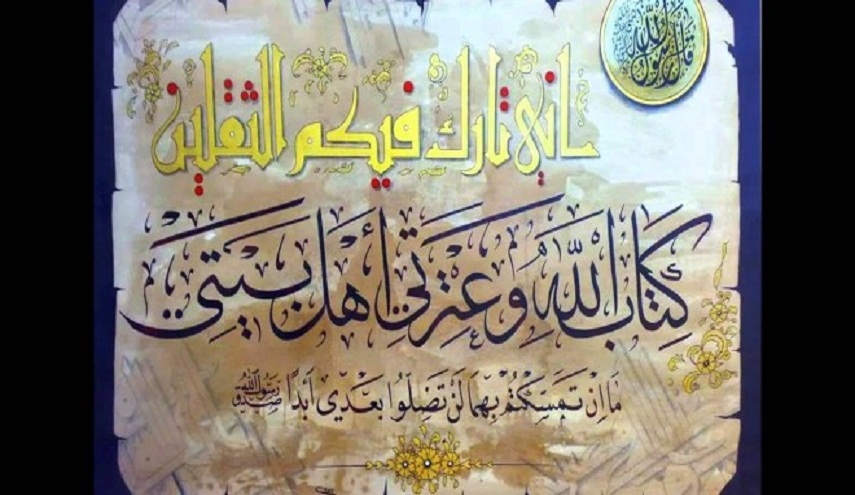 قال رسول الله
إني تارك فيكم الثقلين
كِتَابَ اللَّهِ وَعِتْرَتِي أَهْلَ بَيْتِي
مَا إِنْ تَمَسَّكْتُمْ بِهِمَا لَنْ تَضِلُّوا بَعْدِي أَبَدًا صدق رسول الله